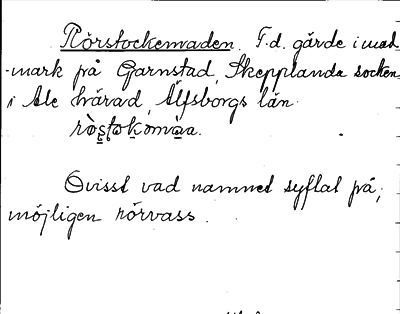 Rörstockemaden. F.d. gärde i mad-
mark på Garnstad, Skepplanda socken
i Ale härad, Älfsborgs län.
Ovisst vad namnet syftat på;
möjligen rörvass.